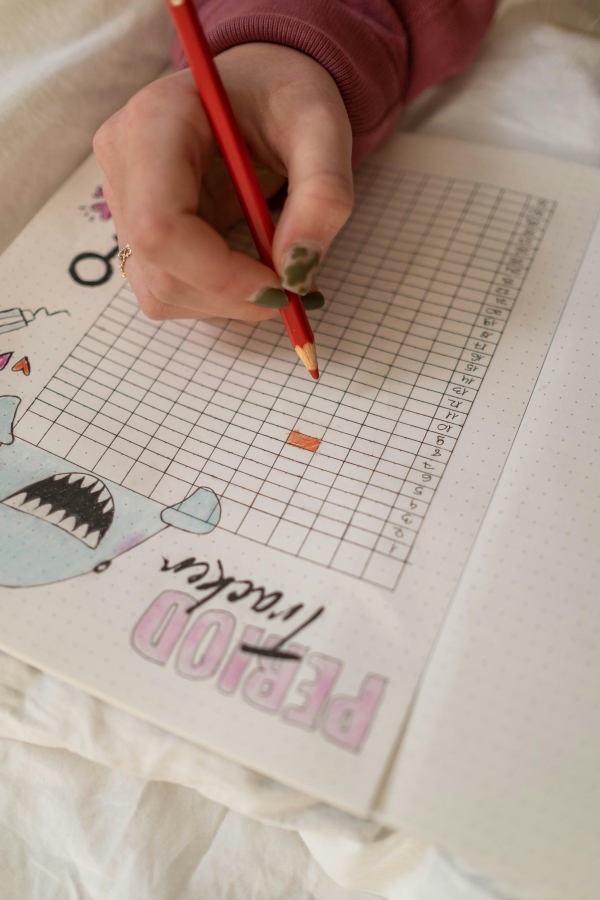 PERIOD
Tracker
1
2
3
4
5
6
7
8
9
10
11
12
13
14
15
16
17
18